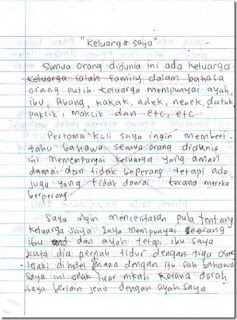 "Keluarga saya"
Semua orang didunia ini ada keluarga
Keluarga ialah family dalam bahasa
orang putih. Keluarga mempunyai ayah,
ibu, Abang, kakak, adek, nenek, datuk,
pakcik, makcik dan etc, etc
Pertama kali saya ingin member-
tahu bahawa semua orang didunia
ini mempunyai keluarga yang aman
damai dan tidak berperang tetapi ado
juga yang tidak damai kerana mereka
berperang
Saya ingin menceritakan pula tentang
keluarga saya. Saya mempunyai seorang
ibu dan ayah tetapi ibu saya
kata dia pernah tidur dengan tiga orang
lelaki dihotel mana dengan itu bahawa
saya ini anak luar nikah kerana darah
saya berlain jenis dengan ayah saya